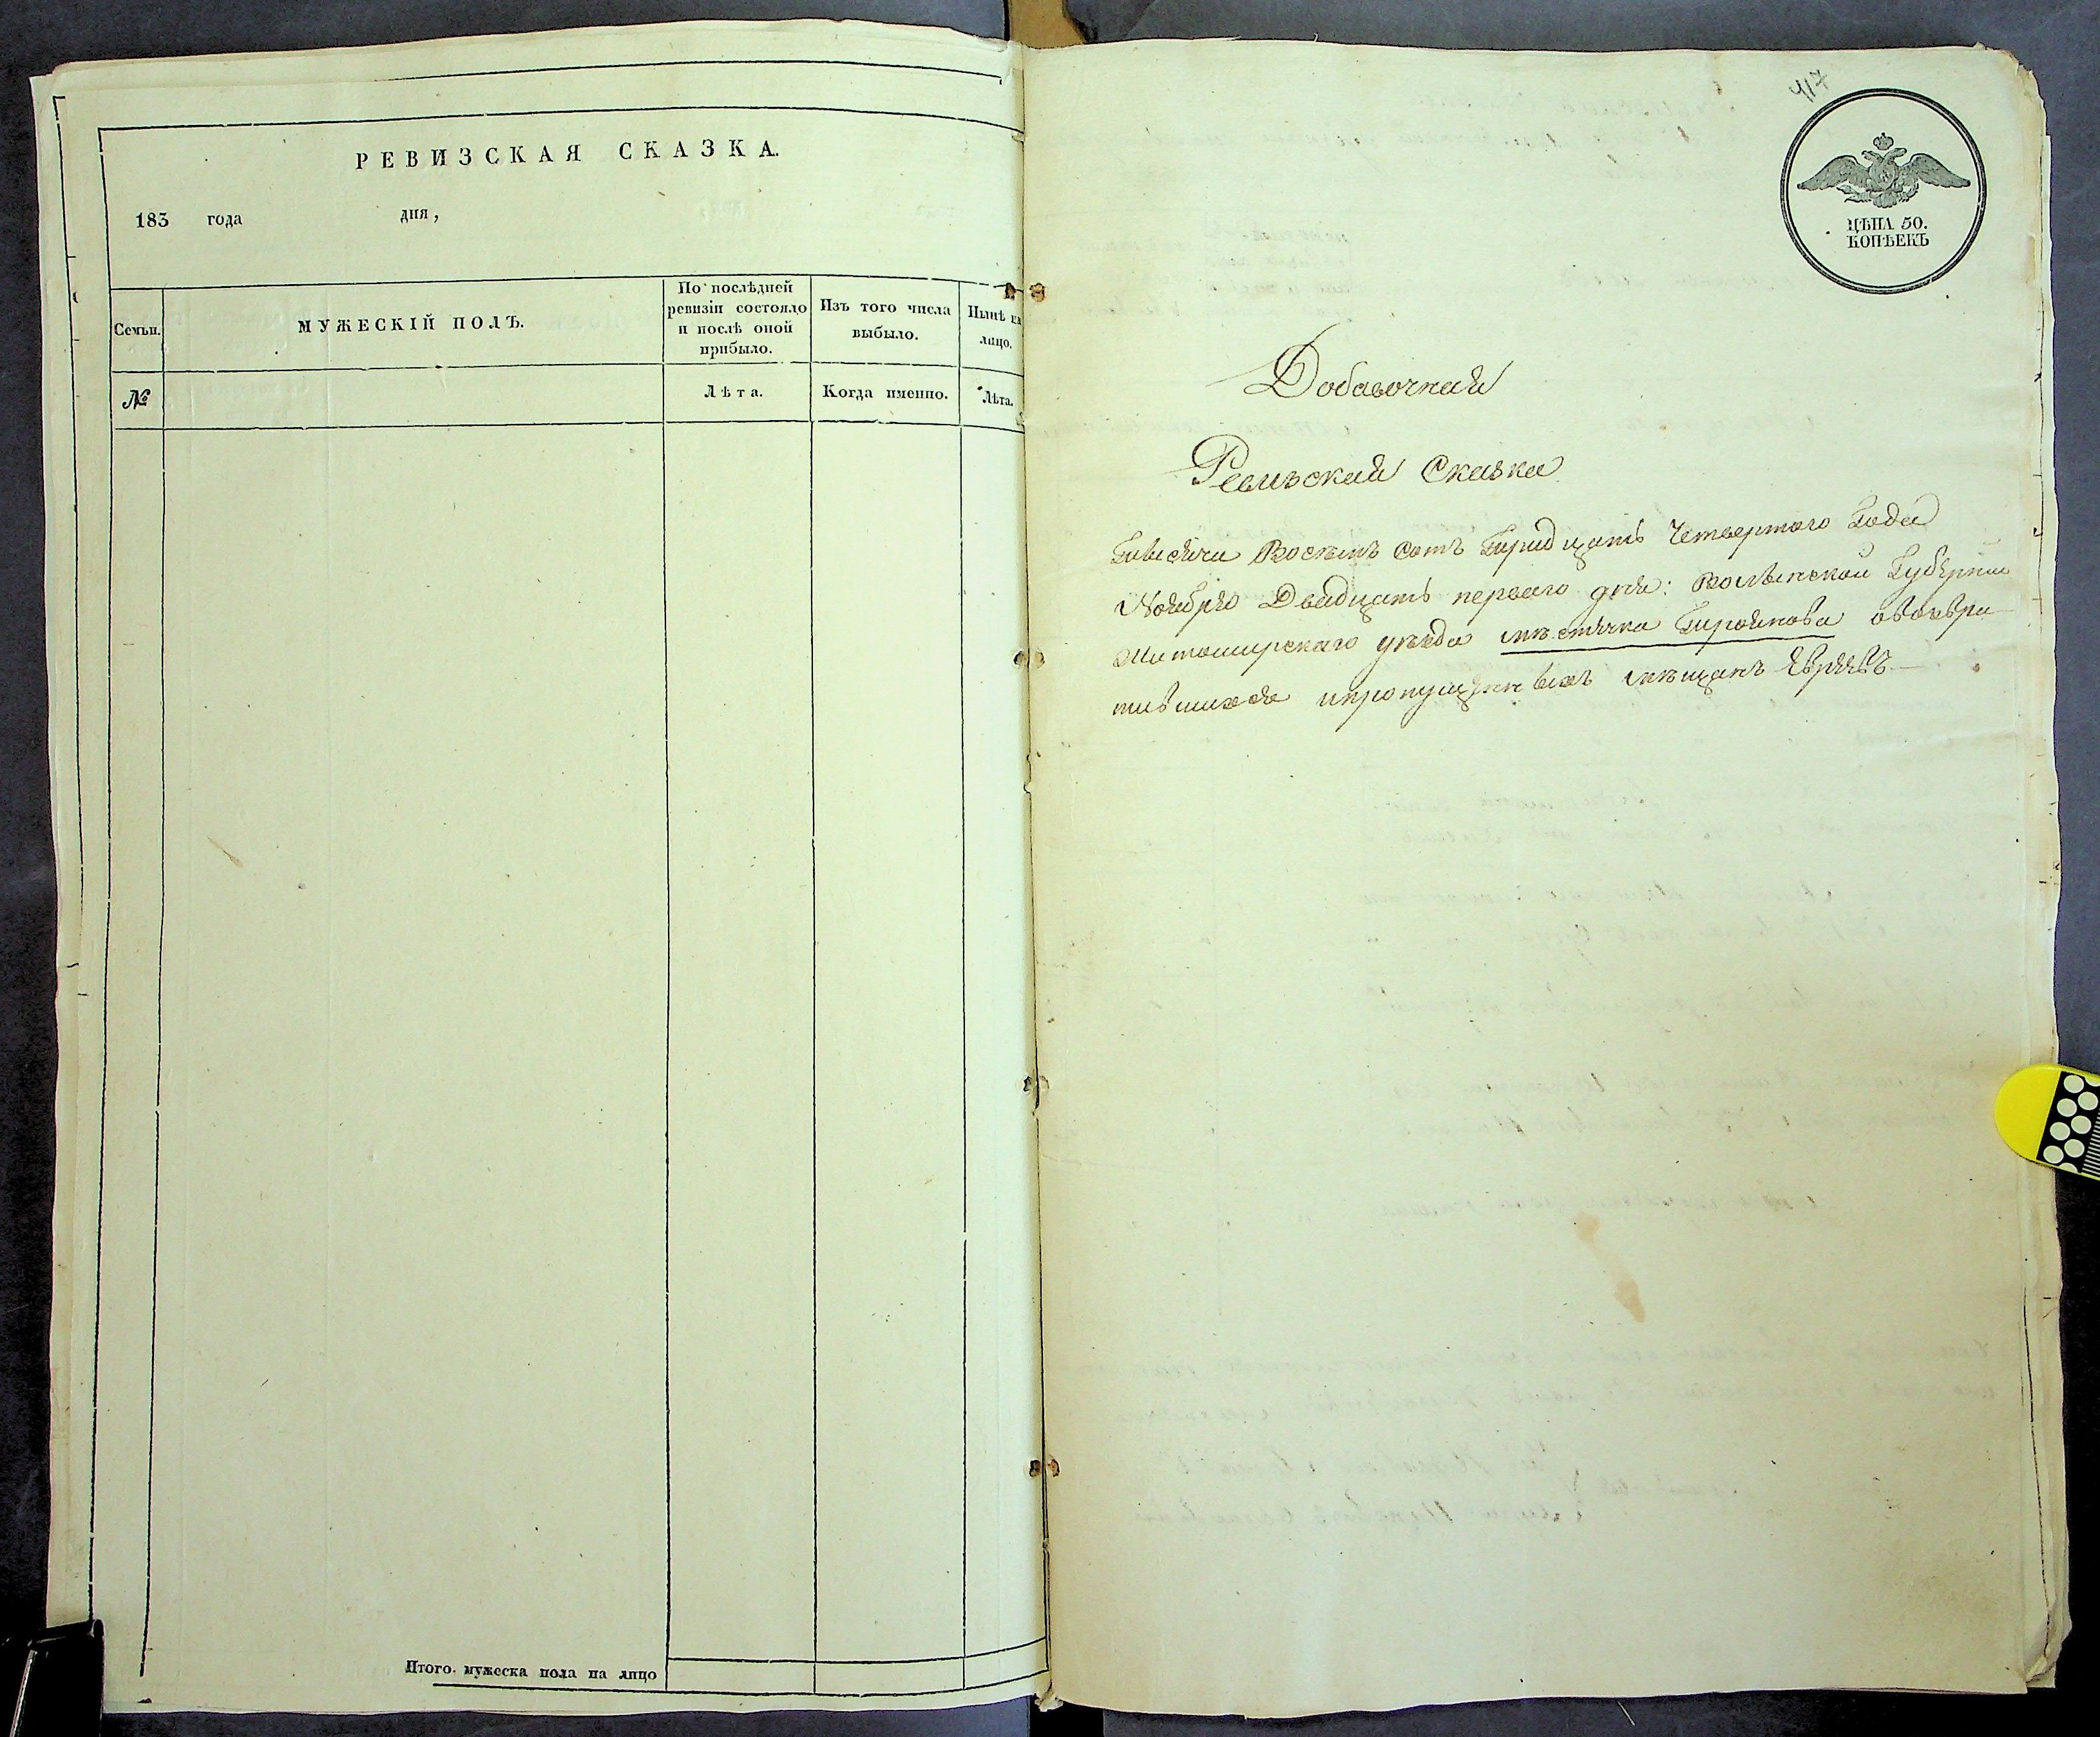 РЕВИЗСКАЯ СКАЗКА.
183 года дня,
Семьи.
МУЖЕСКІЙ ПОЛЪ.
По послѣдней
ревизіи состояло
и послѣ оной
прибыло.
Изъ того числа
выбыло.
Нынѣ на
лицо.
№
Лѣта.
Когда именно.
Лѣта.
Итого мужеска пола на лицо
417
ЦѢНА 50.
КОПѢЕКЪ
Добавочная
Ревизская Сказка
Тысяча Восемъ сотъ Тридцать Четвертого Года
Ноября Двадцать первого дня: Волынской Губерніи
Житомирского уѣзда мѣстечка Троянова
пропущенныхъ мѣщанъ Евреевъ